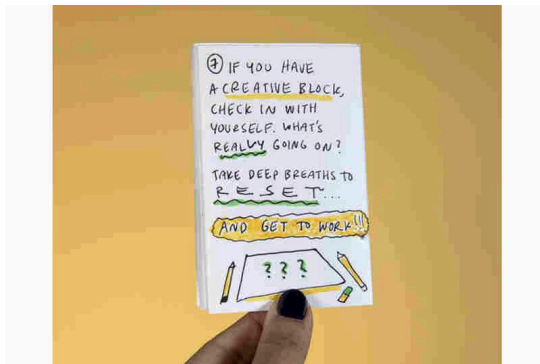 7 IF YOU HAVE
A CREATIVE BLOCK,
CHECK IN WITH
YOURSELF. WHAT'S
REALLY GOING ON?
TAKE DEEP BREATHS TO
RESET...
AND GET TO WORK!!!
???